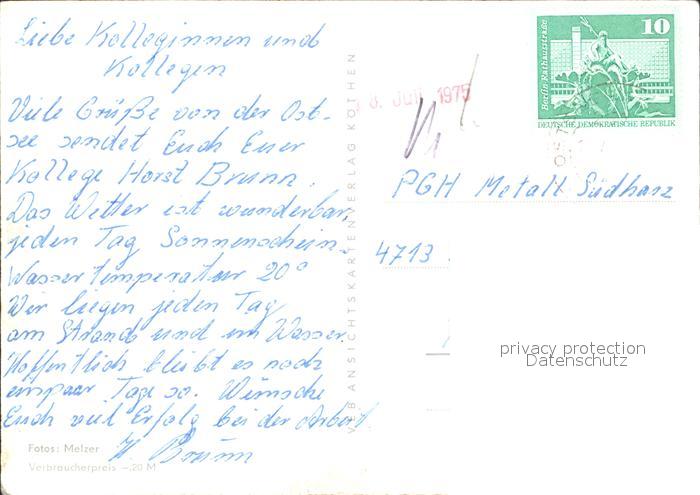 Liebe Kolleginnen und
Kollegen
Viele Grüße von der Ost-
see sendet Euch Euer
Kollege Horst Brunn.
Das Wetter ist wunderbar,
jeden Tag Sonnenschein.
Wassertemperatur 20°
Wir liegen jeden Tag
am Strand und im Wasser.
Hoffentlich bleibt es noch
einpaar Tage so. Wünsche
Euch viel Erfolg bei der Arbeit
H. Brunn
Fotos: Melzer
Verbraucherpreis –,20 M
VEB ANSICHTSKARTENVERLAG KÖTHEN
8. Juli 1975
Berlin, Rathausstraße
10
DEUTSCHE DEMOKRATISCHE REPUBLIK
PGH Metall Südharz
4713
privacy protection
Datenschutz